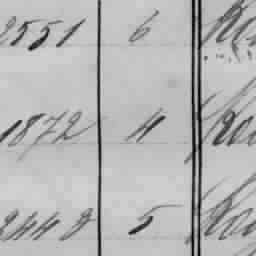 2551 6
1872 4
2448 5